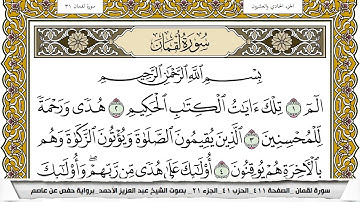 سورة لقمان ٣١
الجزء الحادي والعشرون
سُورَةُ لُقۡمَانَ
بِسۡمِ ٱللَّهِ ٱلرَّحۡمَٰنِ ٱلرَّحِيمِ
الٓمٓ ١ تِلۡكَ ءَايَٰتُ ٱلۡكِتَٰبِ ٱلۡحَكِيمِ ٢ هُدٗى وَرَحۡمَةٗ
لِّلۡمُحۡسِنِينَ ٣ ٱلَّذِينَ يُقِيمُونَ ٱلصَّلَوٰةَ وَيُؤۡتُونَ ٱلزَّكَوٰةَ وَهُم
بِٱلۡأٓخِرَةِ هُمۡ يُوقِنُونَ ٤ أُوْلَٰٓئِكَ عَلَىٰ هُدٗى مِّن رَّبِّهِمۡۖ وَأُوْلَٰٓئِكَ
سورة لقمان _ الصفحة ٤١١ _ الحزب ٤١ _ الجزء ٢١ _ بصوت الشيخ عبد العزيز الأحمد _ برواية حفص عن عاصم